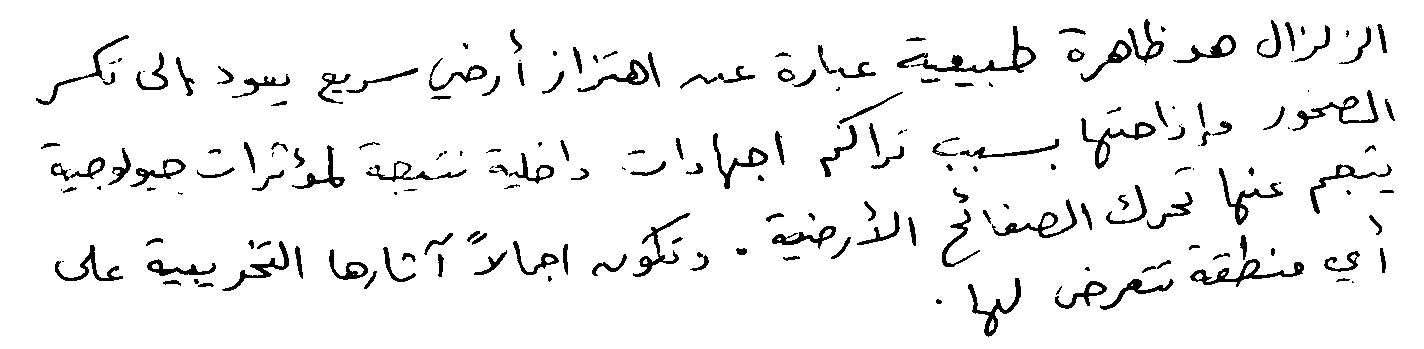 الزلزال هو ظاهرة طبيعية عبارة عن اهتزاز أرضي سريع يعود إلى تكسر
الصخور وإزاحتها بسبب تراكم اجهادات داخلية نتيجة لمؤثرات جيولوجية
ينجم عنها تحرك الصفائح الأرضية. وتكون اجمالاً آثارها التخريبية على
أي منطقة تتعرض لها.